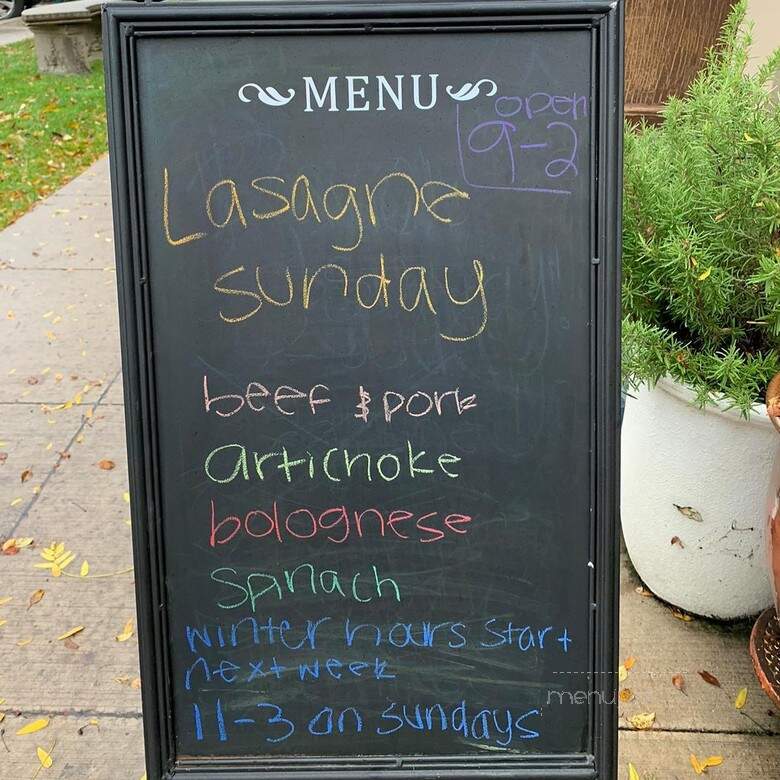 MENU
open
9-2
Lasagne
sunday
beef & pork
artichoke
bolognese
spinach
winter hours start
next week
11-3 on sundays
menu